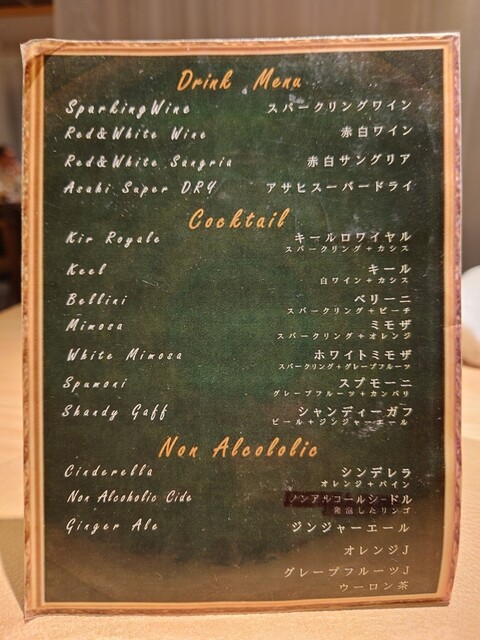 Drink Menu
Sparking Wine スパークリングワイン
Red&White Wine 赤白ワイン
Red&White Sangria 赤白サングリア
Asahi Super DRY アサヒスーパードライ
Cocktail
Kir Royale キールロワイヤル
スパークリング+カシス
Keel キール
白ワイン+カシス
Bellini ベリーニ
スパークリング+ピーチ
Mimosa ミモザ
スパークリング+オレンジ
White Mimosa ホワイトミモザ
スパークリング+グレープフルーツ
Spumoni スプモーニ
グレープフルーツ+カンパリ
Shandy Gaff シャンディーガフ
ビール+ジンジャーエール
Non Alcololic
Cinderella シンデレラ
オレンジ+パイン
Non Alcoholic Cide ノンアルコールシードル
発泡したリンゴ
Ginger Ale ジンジャーエール
オレンジJ
グレープフルーツJ
ウーロン茶